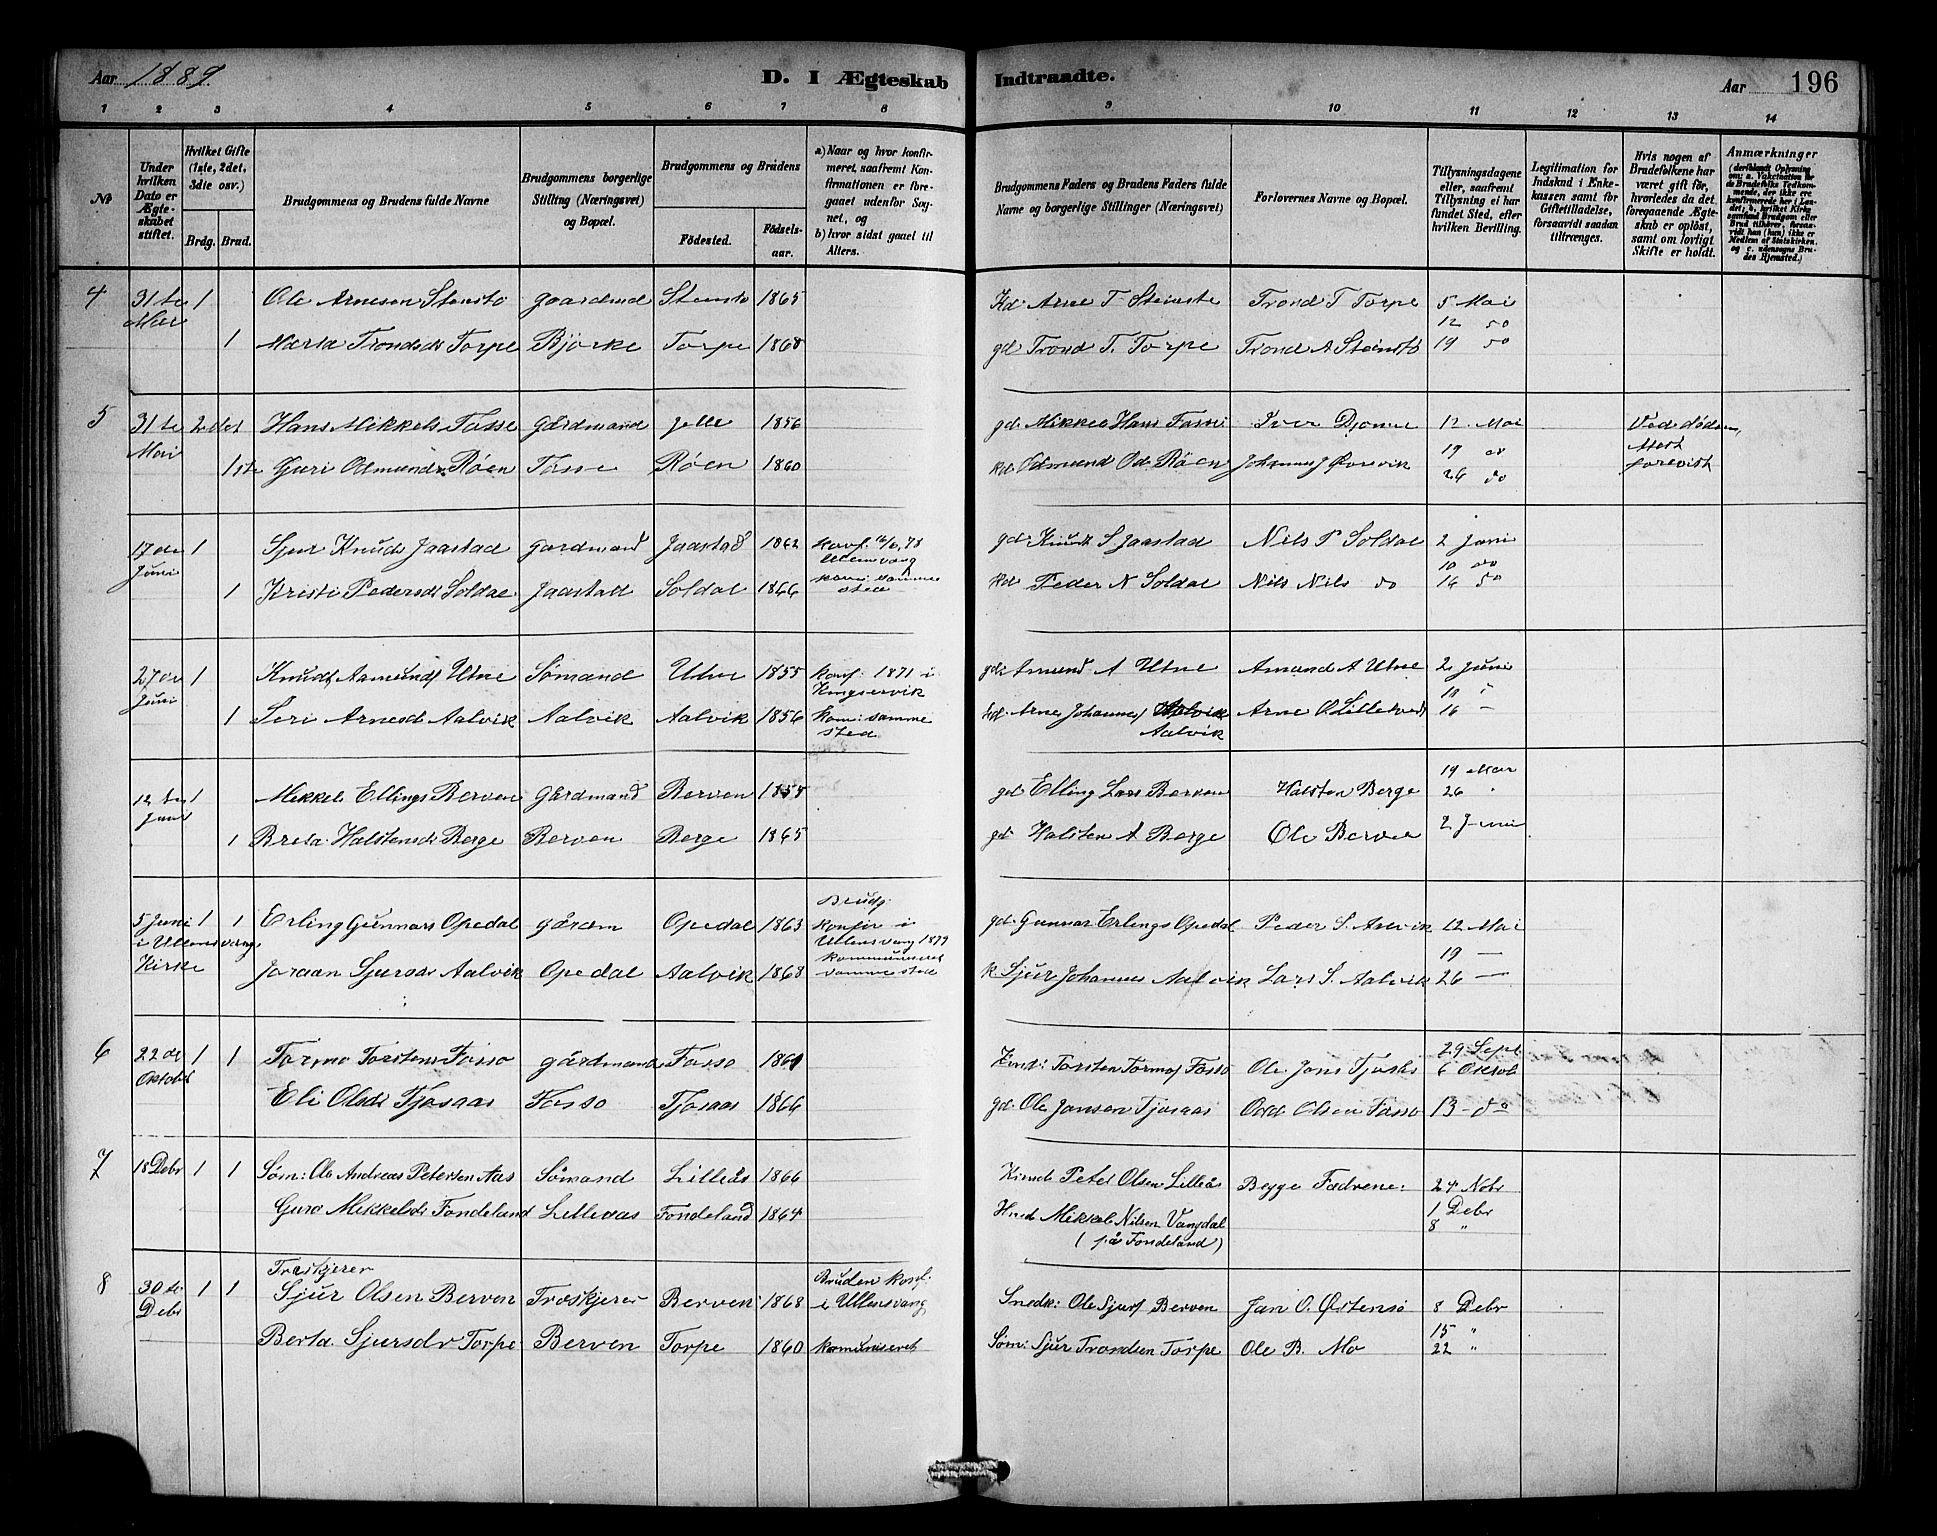 Aar 1889.
D. I Ægteskab Indtraadte.
Aar 196
1 2 3 4 5 6 7 8 9 10 11 12 13 14
No
Under hvilken Dato er Ægteskabet stiftet.
Hvilket Gifte (1ste, 2det, 3die osv.)
Brdg. Brud.
Brudgommens og Brudens fulde Navne
Brudgommens borgerlige Stilling (Næringsvei) og Bopæl.
Brudgommens og Brudens
Födested. Födselsaar.
a) Naar og hvor konfirmeret, saafremt Konfirmationen er foregaaet udenfor Sognet, og
b) hvor sidst gaaet til Alters.
Brudgommens Faders og Brudens Faders fulde Navne og borgerlige Stillinger (Næringsvei)
Forlovernes Navne og Bopæl.
Tillysningsdagene eller, saafremt Tillysning ei har fundet Sted, efter hvilken Bevilling.
Legitimation for Indskud i Enkekassen samt for Giftetilladelse, forsaavidt saadan tiltrænges.
Hvis nogen af Brudefolkene har været gift för, hvorledes da det foregaaende Ægteskab er oplöst, samt om lovligt Skifte er holdt.
Anmærkninger
4 31te Mai 1 Ole Arnesen Stensto gaardmd Stensto 1865 Arne T. Steinste Trond T Torpe 5 Mai
12 do
1 Marta Trondsdr Torpe Björke Torpe 1868 gd Trond T. Torpe Trond A Steinstö 19 do
5 31te Mai 2det Hans Mikkels Fosse Gårdmand 1856 gd Mikkel Hans Iver Djonne 12 Mai
Ved döden,
19 do
1ste Guri Odmunds Röen Fosse Röen 1860 Odmund Od. Röen Johannes J 26 do
17de Juni 1 Sjur Knuds Jaastad Gardmand Jaastad 1862 Konf. Ullensvang gd Knud S Jaastad Nils P Soldal 2 Juni
10 do
1 Kristi Pedersdr Soldal Jaastad Soldal 1866 kom: samme sted Peder N Soldal Nils Nils do 16 do
27de Juni 1 Knud Asmunds Utne Sømand Utne 1855 Konf: 1871 i Kingservik gd A Utne A Utne 2 Juni
1 Arnesdr Aalvik Aalvik Aalvik 1856 Kom: samme sted Arne Johannes Aalvik Arne O 16 —
12te Juni 1 Mikkel Ellings Berven Gårdmand Berven gd Elling Lars Berven Halsten Berge 19 Mai
26 "
1 Breta Halstensdr Berge Berven Berge 1865 gd Halsten A Berge Ole Berven 2 Juni
5 Juni i Ullensvangs Kirke 1 1 Erling Gunnars Opedal gårdm Opedal 1863 Brudg. Konfir i Ullensvang 1879 gd. Gunnar Erlings Opedal Peder S. Aalvik 12 Mai
19 —
Joraan Sjursdr Aalvik Opedal Aalvik 1868 kommuniseret samme sted Sjur Johannes Aalvik Lars S. Aalvik 26 —
6 22de Oktobr 1 1 Tormo Torstens Fosso gårdmand Fosso 1861 Torsten Tormos Fosso Ole Jons 29 Sept
6 Oktob
Eli Olsdr Tjosaas Fosso Tjosaas 1866 gd. Ole Jonsen Tjosaas Olsen Fosso 13 — do
7 18 Debr 1 1 Søm: Ole Andreas Petersen Aas Sömand Lilleås 1866 Peter Olsen Lilleås Begge Fædrene: 24 Nobr
1 Debr
Guro Mikkelsdr Fondeland Lilleaas Fondeland 1864 Mikkel Nilsen Vangdal 8 "
( på Fondeland)
8 30te Debr 1 1 Træskjerer
Sjur Olsen Berven Træskjerer Berven 1868 Bruden konf: i Ullensvang Snedk: Ole Sjurs Berven Jan O. Østensö 8 Debr
15 "
Berta Sjursdr Torpe Berven Torpe 1860 komuniseret Søm: Sjur Trondsen Torpe Ole B. Mo 22 "